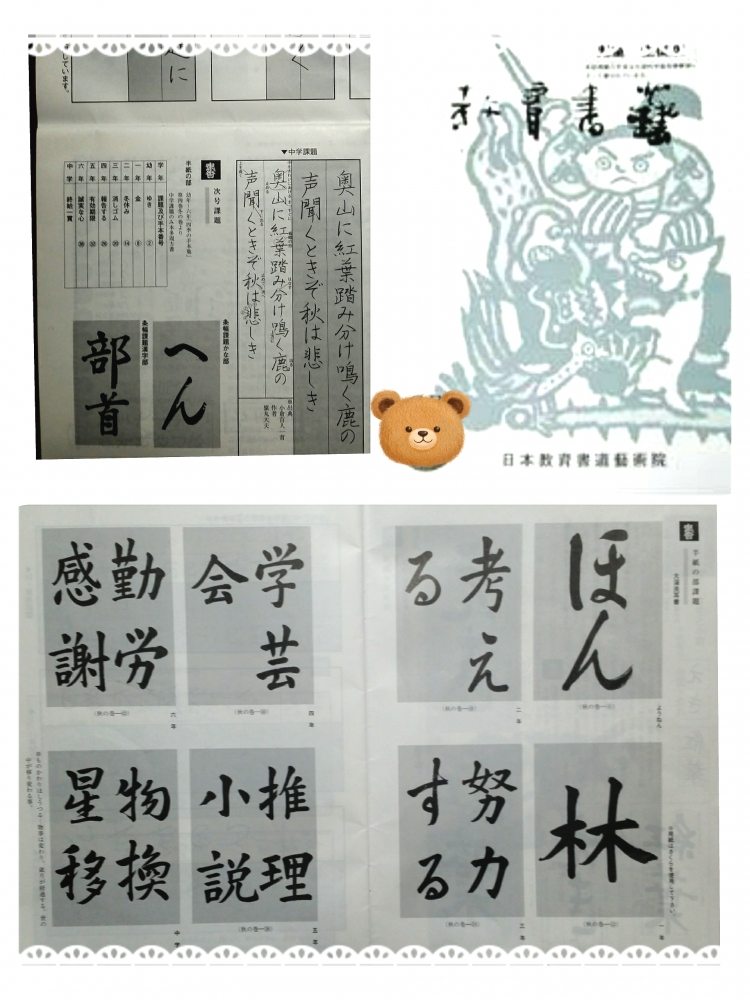 しています。
に
く
▼中学課題
奥山に紅葉踏み分け鳴く鹿の
声聞くときぞ秋は悲しき
奥山に紅葉踏み分け鳴く鹿の
声聞くときぞ秋は悲しき
作者
猿丸大夫
次号課題
半紙の部
学年 課題及び手本番号
幼年 ゆき
一年 金
二年 冬休み
三年 消しゴム
四年 報告する
五年 有効期限
六年 誠実な心
中学 終始一貫
条幅課題かな部
へん
条幅課題漢字部
部首
教育書藝
日本教育書道藝術院
半紙の部課題
ほん
ようねん
考え
る
二年
学芸
会
四年
勤労
感謝
六年
林
一年
努力
する
三年
推理
小説
五年
物換
星移
中学